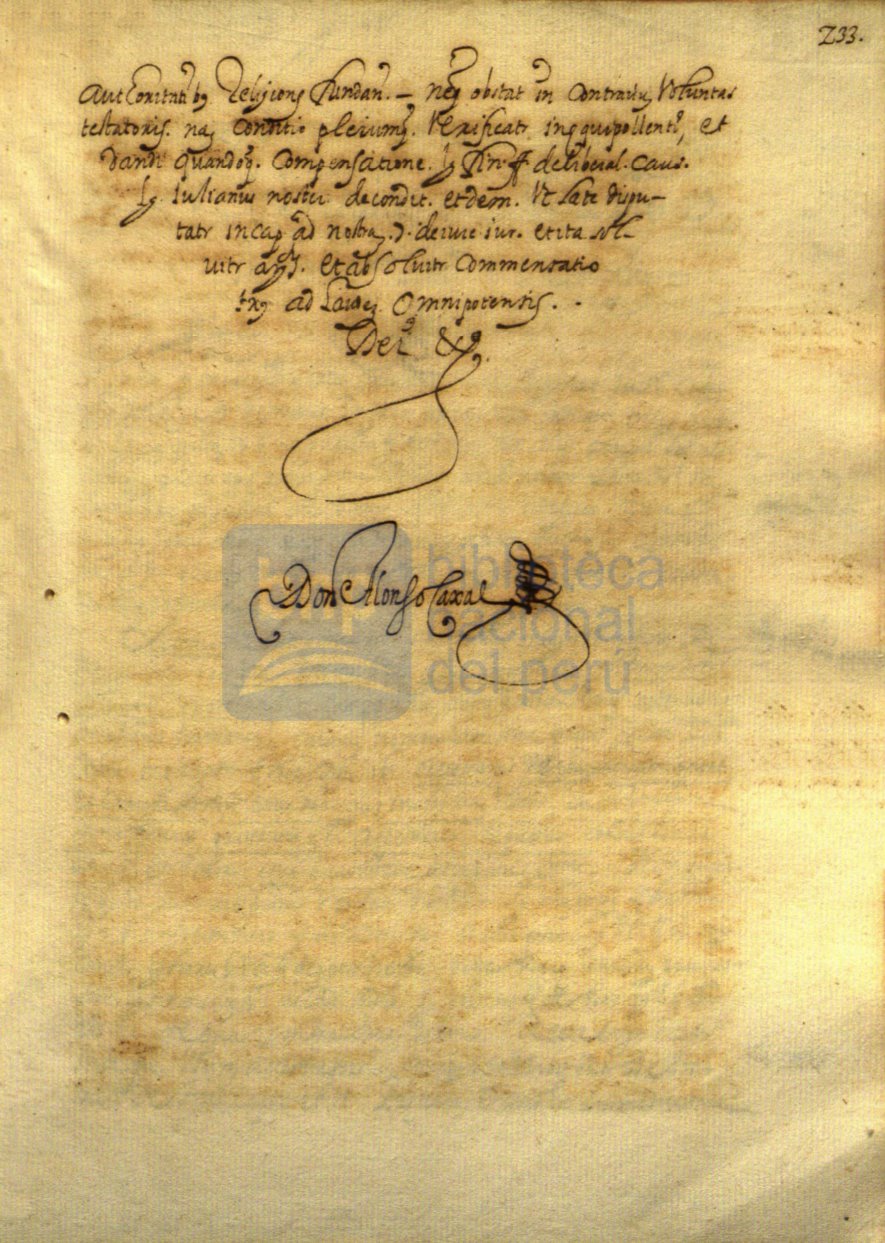 233.
Autoritatibꝫ Religions fundan. – neqꝫ obstat in contrariuꝫ Voluntas
testatoris. naꝫ Conditio pleiumqꝫ. Verificatr ineqquipollenti, et
dandi quandoqꝫ. Compensatione. l. fin. ff de liberal. caus.
l. Iulianus nostri de condit. et dem. Vt late dispu–
tatr in cap ad nostraꝫ. 2. de iure iur. et ita sol–
uitr et absoluitr Commentatio
ad Laudeꝫ Omnipotentis.
Dei &
Don Alonso Caxal
biblioteca
nacional
del perú